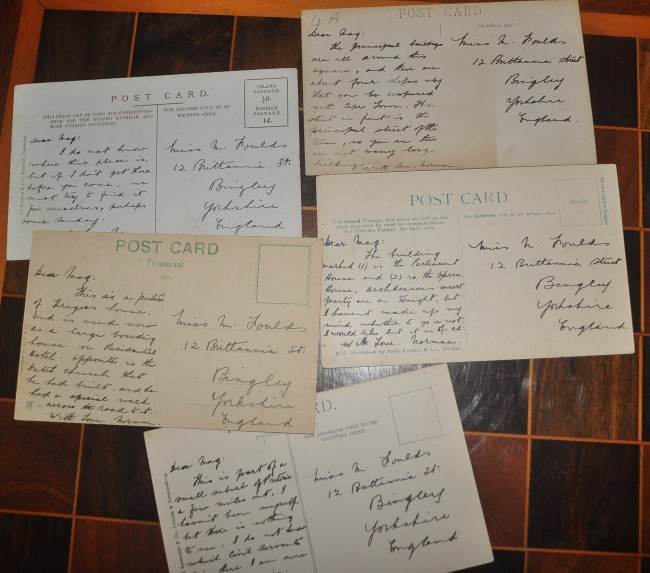 4A
POST CARD.
Dear Mag:
The principal buildings
are all around this
square, and there are
about four shops only
that can be compared
with Cape Town. The
street in front is the
principal street of the
town, so you see there
are not many large
buildings. With love. Norman.
Miss M. Foulds
12 Brittannia Street
Bingley
Yorkshire
England.
POST CARD.
THIS SPACE CAN BE USED FOR CORRESPOND-
ENCE FOR THE UNITED KINGDOM AND
MOST FOREIGN COUNTRIES.
THE ADDRESS ONLY TO BE
WRITTEN HERE.
INLAND
POSTAGE,
½d.
FOREIGN
POSTAGE
1d.
Dear Mag:
I do not know
where this place is,
but if I don't get there
before you come, we
must try to find it
for ourselves, perhaps
some Sunday.
Miss M. Foulds
12 Brittannia St.
Bingley
Yorkshire
England
POST CARD
For Inland Postage, this space as well as the
back may now be used for communication.
For Foreign Postage the back only.
The Address only to be written here.
STAMP
Dear Mag:
The building
marked (1) is the Parliament
House and (2) is the Opera
House,
party are on tonight, but
I haven't made up my
mind whether to go or not.
I would like but it is
With Love. Norman.
Published by Sallo Epstein & Co., Durban
Miss M. Foulds
12 Brittannia Street
Bingley
Yorkshire
England
POST CARD
Transvaal
Dear Mag:
This is a picture
of Krugers house,
and is used now
as a large boarding
house or Residential
Hotel. Opposite is the
Dutch church that
he had built, and he
had a special walk
across the road to it.
With Love. Norman.
Miss M. Foulds
12 Brittannia St.
Bingley
Yorkshire
England
RD.
THE ADDRESS ONLY TO BE
WRITTEN HERE.
Dear Mag:
This is part of a
small suburb of Pretoria
a few miles out. I
haven't been myself
but there is nothing
to see. I do not know
which civil servants
there I am sure
Miss M. Foulds
12 Brittannia St.
Bingley
Yorkshire
England